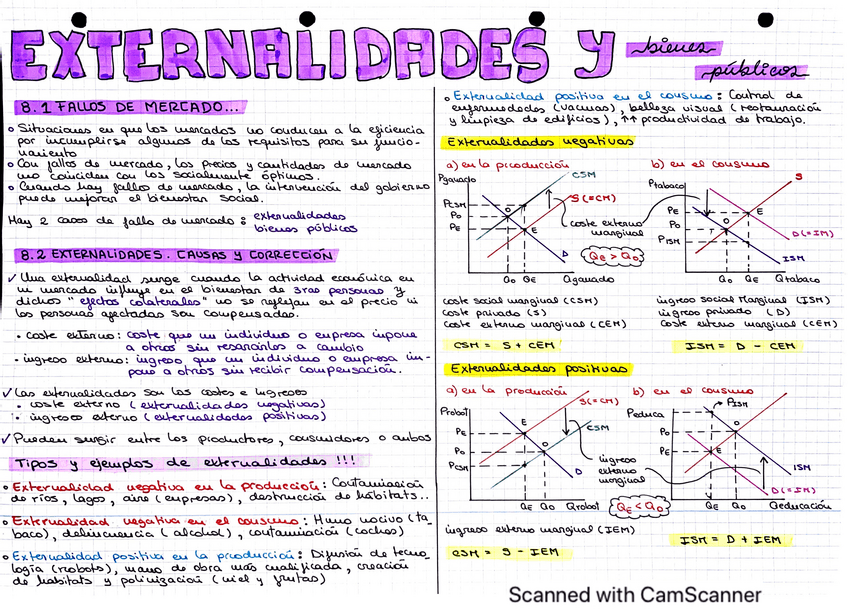 EXTERNALIDADES Y bienes
públicos
8.1 FALLOS DE MERCADO...
Situaciones en que los mercados no conducen a la eficiencia
por incumplirse algunos de los requisitos para su funcio-
namiento
Con fallos de mercado, los precios y cantidades de mercado
no coinciden con los socialmente óptimos.
Cuando hay fallos de mercado, la intervención del gobierno
puede mejorar el bienestar social.
Hay 2 casos de fallo de mercado: externalidades
bienes públicos
8.2 EXTERNALIDADES. CAUSAS Y CORRECCIÓN
✓ Una externalidad surge cuando la actividad económica en
un mercado influye en el bienestar de 3ras personas y
dichos "efectos colaterales" no se reflejan en el precio ni
las personas afectadas son compensadas.
• coste externo: coste que un individuo o empresa impone
a otros sin resarcirlos a cambio
• ingreso externo: ingreso que un individuo o empresa im-
pone a otros sin recibir compensación.
✓ Las externalidades son los costes e ingresos
• coste externo (externalidades negativas)
• ingreso externo (externalidades positivas)
✓ Pueden surgir entre los productores, consumidores o ambos
Tipos y ejemplos de externalidades !!!
Externalidad negativa en la producción: Contaminación
de ríos, lagos, aire (empresas), destrucción de hábitats..
Externalidad negativa en el consumo: Humo nocivo (ta_
baco), delincuencia (alcohol), contaminación (coches)
Externalidad positiva en la producción: Difusión de tecno_
logía (robots), mano de obra más cualificada, creación
de habitats y polinización (miel y frutas)
Externalidad positiva en el consumo: Control de
enfermedades (vacunas), belleza visual (restauración
y limpieza de edificios), ↑↑ productividad de trabajo.
Externalidades negativas
a) en la producción
Pganado
CSM
S(=CM)
PCSM
Po
PE
O
E
D
coste externo
marginal
QE > Qo
Qo QE Qganado
b) en el consumo
Ptabaco
S
PE
Po
PISM
E
O
D(=IM)
ISM
Qo QE Qtabaco
coste social marginal (CSM)
coste privado (S)
coste externo marginal (CEM)
CSM = S + CEM
ingreso social Marginal (ISM)
ingreso privado (D)
coste externo marginal (CEM)
ISM = D - CEM
Externalidades positivas
a) en la producción
Probot
S(=CM)
CSM
PE
Po
PCSM
E
O
D
ingreso
externo
marginal
QE Qo Qrobot
QE < Qo
b) en el consumo
Peduca
PISM
Po
PE
O
E
ISM
D(=IM)
QE Qo Qeducación
ingreso externo marginal (IEM)
CSM = S - IEM
ISM = D + IEM
Scanned with CamScanner